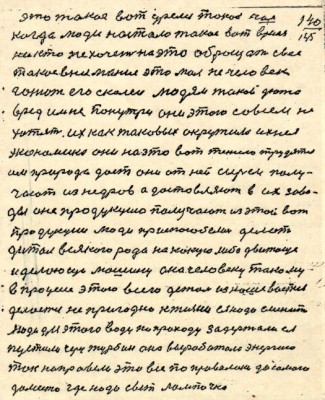 это такое вот время такое час
140
145
когда люди настало такое вот время
никто не хочет на это обращать свое
такое внимание это мол не человек
людям такой
вред им не они этого совсем не
хотят. их как таковых окружила ихняя
экономика они на это вот трудятся
им природа дает они от ней сырье полу-
чают из недров а доставляют в их заво-
ды она продукцию получают из этой вот
продукции люди приспособились делать
детал всякого рода на какую либо
и делающую машину она человеку такому
в процесе этого всего детал
делается не пригодно к жизни ее надо сменить
люди этого воду по проходу задержали ее
пустили через турбин она выработала энергию
ток направили это все по проволоки до самого
до места где надо свет лампочка